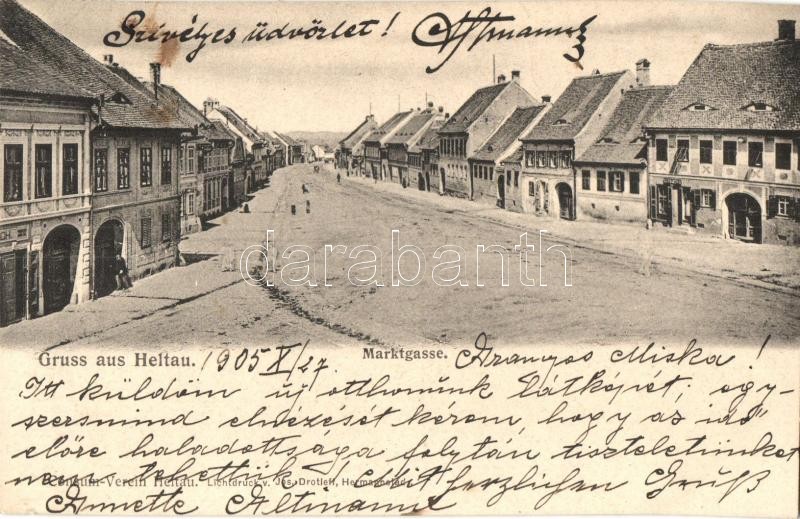 Szívélyes üdvözlet!
darabanth
Gruss aus Heltau. 1905 X/27
Marktgasse.
Aranyos Miska!
Itt küldöm új otthonunk látképét, egy-
szersmind elnézését kérem, hogy az idő
előre haladottsága folytán tiszteletünket
nem tehettük! Mit herzlichen Gruß
Consum-Verein Heltau. Lichtdruck v. Jos. Drotleff, Hermannstadt.
Annette